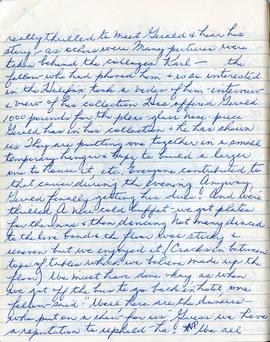 really thrilled to meet Gerald & hear his
story - as others were. Many pictures were
taken behind the collages. Karl - the
fellow who had phoned him & is so interested
in the Halifax took a video of him - interview
& view of his collection. Des offered Gerald
1000 pounds for the plexi-glass nose piece
Gerald has in his collection & he has shown
us. They are putting one together in a small
temporary hangar & hope to build a larger
one to house it, etc. Everyone contributed to
that cause during the evening. Anyway,
Gerald finally gotten his drink and were
thrilled. A nice cold buffet, we got plates
for the wine & then dancing. Not many danced
to the live band and floor was sticky &
uneven but we enjoyed it / Cracks in between
tops of tables which we believe made up the
floor. We must have done okay as when
we got off the bus to go back in hotel one
fellow said "Well here are the dancers -
who put on a show for us". Guess we have
a reputation to uphold he! We all